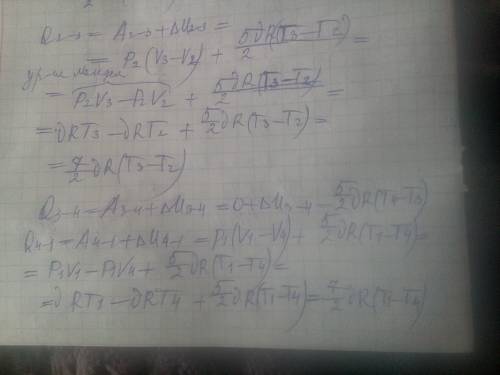 Q₂₋₃ = A₂₋₃ + ΔU₂₋₃ =
= P₂(V₃ − V₂) + 5/2 ∂R(T₃ − T₂) =
= P₂V₃ − P₂V₂ + 5/2 ∂R(T₃ − T₂) =
= ∂RT₃ − ∂RT₂ + 5/2 ∂R(T₃ − T₂) =
= 7/2 ∂R(T₃ − T₂)
Q₃₋₄ = A₃₋₄ + ΔU₃₋₄ = 0 + ΔU₃₋₄ = 5/2 ∂R(T₄ − T₃)
Q₄₋₁ = A₄₋₁ + ΔU₄₋₁ = P₁(V₁ − V₄) + 5/2 ∂R(T₁ − T₄) =
= P₁V₁ − P₁V₄ + 5/2 ∂R(T₁ − T₄) =
= ∂RT₁ − ∂RT₄ + 5/2 ∂R(T₁ − T₄) = 7/2 ∂R(T₁ − T₄)